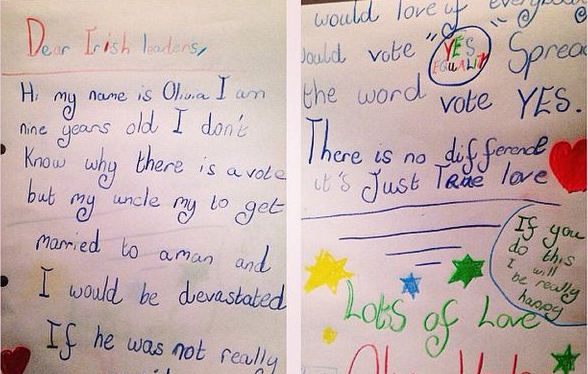 Dear Irish leaders,
Hi my name is Olivia I am
nine years old I don't
Know why there is a vote
but my uncle my to get
married to a man and
I would be devastated
If he was not really
would love if everybody
would vote "YES
EQUALITY"
Spread
the word vote YES.
There is no difference
it's Just True love
If you
do this
I will
be really
happy
Lots of Love
Olivia